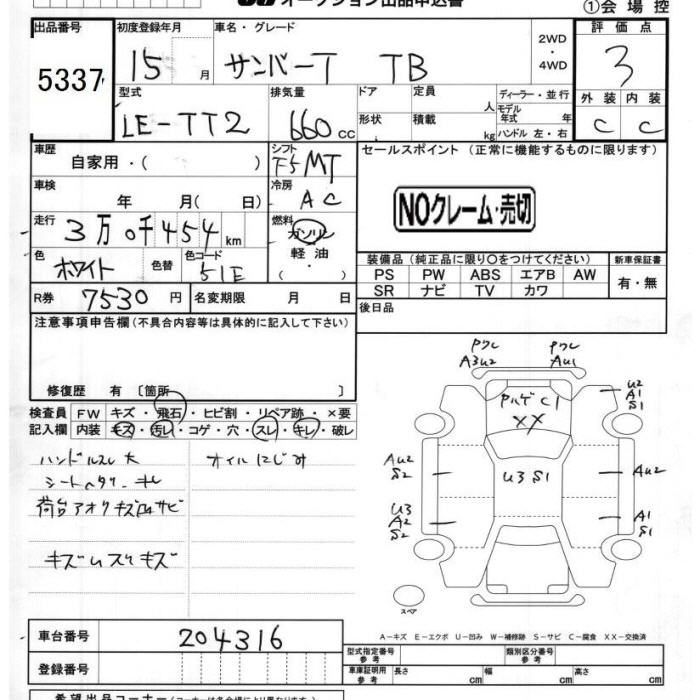 オークション出品申込書
①会場控
出品番号 初度登録年月 車名・グレード 評価点
5337 15月 サンバーT TB 2WD・4WD 3
型式 排気量 ドア 定員 ディーラー・並行 外装 内装
LE-TT2 660cc 形状 積載 人 kg モデル年式 年 ハンドル 左・右 C C
車歴 シフト セールスポイント (正常に機能するものに限ります)
自家用・( ) F5MT
車検 冷房
年 月( 日) AC NOクレーム・売切
走行 燃料
3万0千454km ガソリン
軽油
・( )
色 色替 色コード 装備品 (純正品に限り○をつけてください) 新車保証書
ホワイト 51E PS PW ABS エアB AW 有・無
SR ナビ TV カワ
R券 7530円 名変期限 月 日 後日品
注意事項申告欄(不具合内容等は具体的に記入して下さい)
修復歴 有 〔箇所 〕
検査員 FW キズ・飛石・ヒビ割・リペア跡・×要
記入欄 内装 キズ・汚レ・コゲ・穴・スレ・キレ・破レ
ハンドルスレ大 オイルにじみ
荷台アオリキズ凹サビ
PクレA3U2
PクレAU1
PハゲC1
XX
U2
A1
S1
AU2
S2
U3S1
AU2
U3
A2
S2
A1
S1
スペア
A-キズ E-エクボ U-凹み W-補修跡 S-サビ C-腐食 XX-交換済
車台番号 204316 型式指定番号 参考 類別区分番号 参考
登録番号 車庫証明用 参考 長さ cm 幅 cm 高さ cm
希望出品コーナー